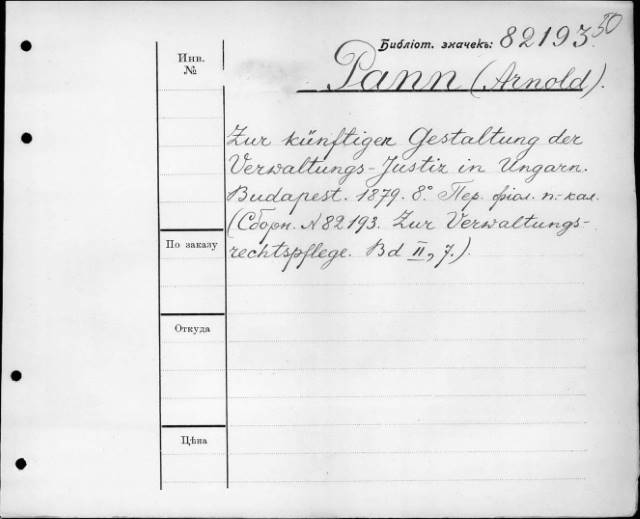 50
Библіот. значекъ: 82193.
Инв.
№
Pann (Arnold).
Zur künftigen Gestaltung der
Verwaltungs-Justiz in Ungarn.
Budapest. 1879. 8°. Пер. фіол. п.-кал.
(Сборн. № 82193. Zur Verwaltungs-
rechtspflege. Bd II, 7.).
По заказу
Откуда
Цѣна